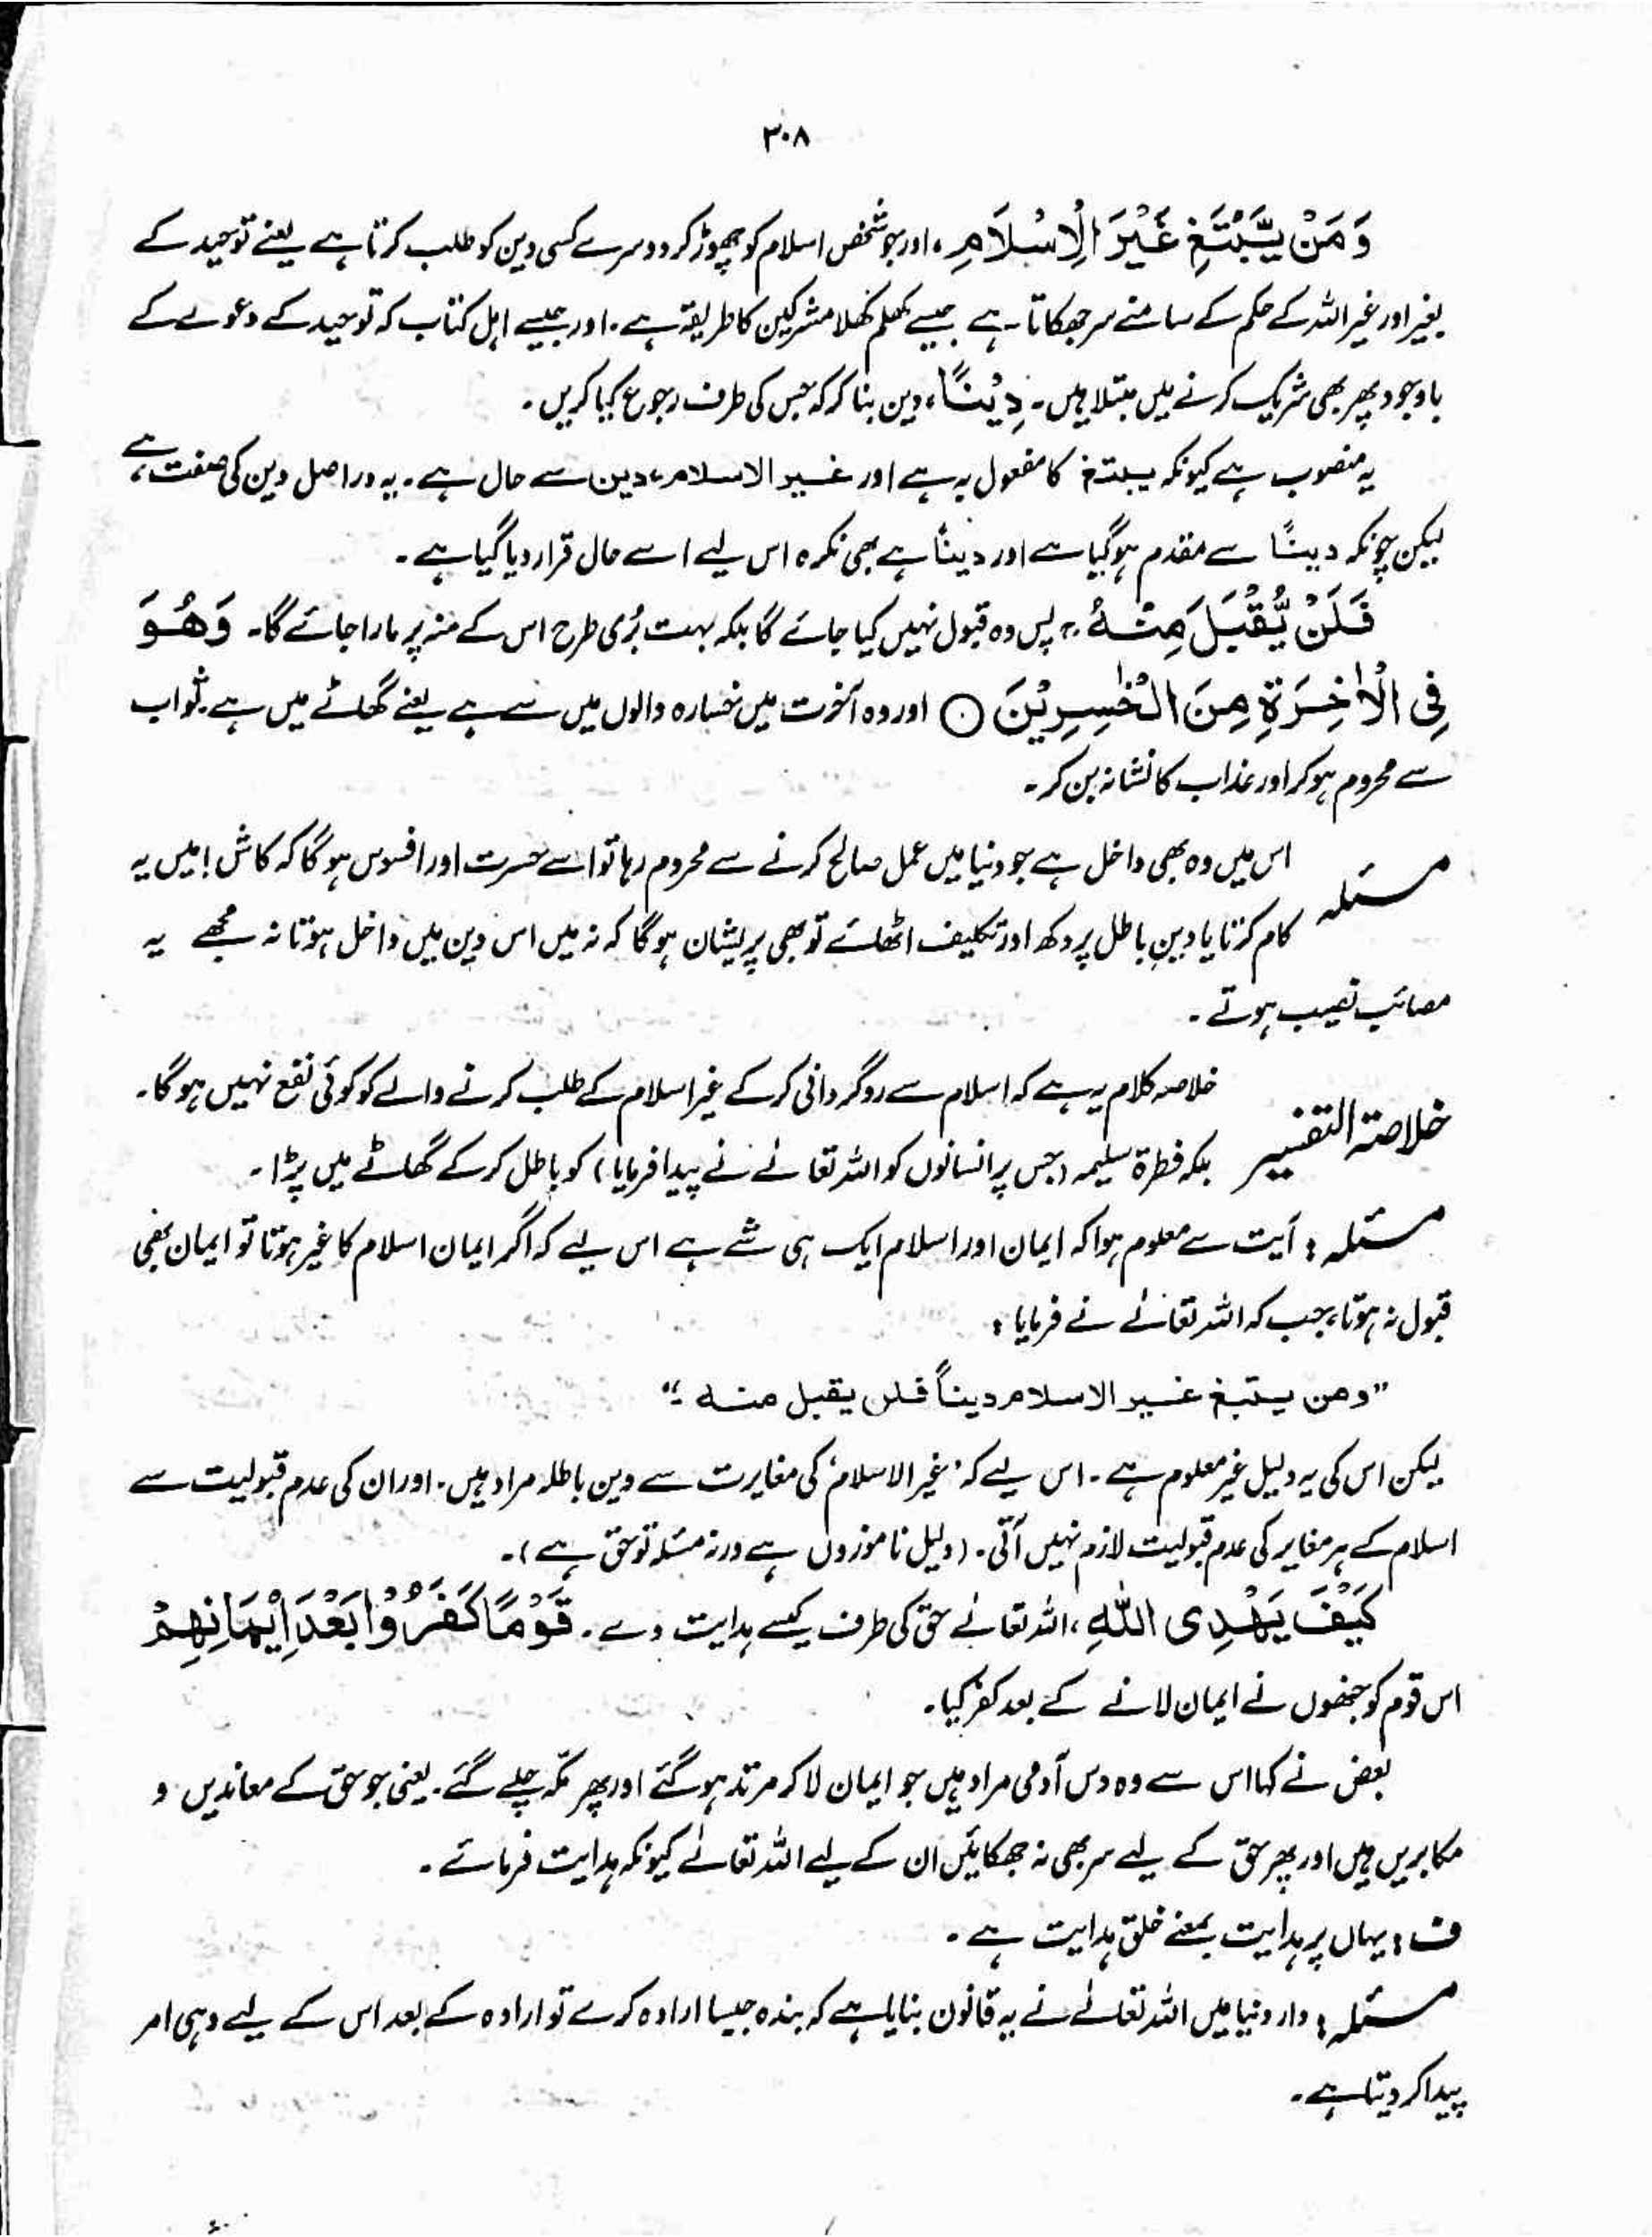 ۳۰۸
وَمَنْ يَّبْتَغِ غَيْرَ الْاِسْلَامِ، اور جو شخص اسلام کو چھوڑ کر دوسرے کسی دین کو طلب کرتا ہے یعنے توحید کے
بغیر اور غیر اللہ کے حکم کے سامنے سر جھکاتا ہے جیسے کھلم کھلا مشرکین کا طریقہ ہے۔ اور جیسے اہل کتاب کہ توحید کے دعوے کے
باوجود پھر بھی شریک کرنے میں مبتلا ہیں۔ دِيْنًا، دین بنا کر کہ جس کی طرف رجوع کیا کریں۔
یہ منصوب ہے کیونکہ یبتغ کا مفعول بہ ہے اور غیر الاسلام، دین سے حال ہے۔ یہ دراصل دین کی صفت ہے،
لیکن چونکہ دینًا سے مقدم ہوگیا ہے اور دینًا ہے بھی نکرہ اس لیے اسے حال قرار دیا گیا ہے۔
فَلَنْ يُّقْبَلَ مِنْهُ، پس وہ قبول نہیں کیا جائے گا بلکہ بہت بُری طرح اس کے منہ پر مارا جائے گا۔ وَهُوَ
فِى الْاٰخِرَةِ مِنَ الْخٰسِرِيْنَ ○ اور وہ آخرت میں خسارہ والوں میں سے ہے یعنے گھاٹے میں ہے۔ ثواب
سے محروم ہو کر اور عذاب کا نشانہ بن کر۔
مسئلہ اس میں وہ بھی داخل ہے جو دنیا میں عمل صالح کرنے سے محروم رہا تو اسے حسرت اور افسوس ہوگا کہ کاش! میں یہ
کام کرتا یا دینِ باطل پر دکھ اور تکلیف اٹھائے تو بھی پریشان ہوگا کہ نہ میں اس دین میں داخل ہوتا نہ مجھے یہ
مصائب نصیب ہوتے۔
خلاصۃ التفسیر خلاصہ کلام یہ ہے کہ اسلام سے روگردانی کرکے غیر اسلام کے طلب کرنے والے کو کوئی نفع نہیں ہوگا۔
بلکہ فطرۃ سلیمہ (جس پر انسانوں کو اللہ تعالےٰ نے پیدا فرمایا) کو باطل کرکے گھاٹے میں پڑا۔
مسئلہ: آیت سے معلوم ہوا کہ ایمان اور اسلام ایک ہی شے ہے اس لیے کہ اگر ایمان اسلام کا غیر ہوتا تو ایمان بھی
قبول نہ ہوتا، جب کہ اللہ تعالےٰ نے فرمایا:
”ومن یبتغ غیر الاسلام دیناً فلن یقبل منه۔“
لیکن اس کی یہ دلیل غیر معلوم ہے۔ اس لیے کہ ’غیر الاسلام‘ کی مغایرت سے دین باطلہ مراد ہیں۔ اور ان کی عدم قبولیت سے
اسلام کے ہر مغایر کی عدم قبولیت لازم نہیں آتی۔ (دلیل ناموزوں ہے ورنہ مسئلہ تو حق ہے)۔
كَيْفَ يَهْدِى اللّٰهِ، اللہ تعالےٰ حق کی طرف کیسے ہدایت دے۔ قَوْمًا كَفَرُوْا بَعْدَ اِيْمَانِهِمْ
اس قوم کو جنھوں نے ایمان لانے کے بعد کفر کیا۔
بعض نے کہا اس سے وہ دس آدمی مراد ہیں جو ایمان لا کر مرتد ہوگئے اور پھر مکّہ چلے گئے۔ یعنی جو حق کے معاندین و
مکابرین ہیں اور پھر حق کے لیے سر بھی نہ جھکائیں ان کے لیے اللہ تعالےٰ کیونکہ ہدایت فرمائے۔
ف: یہاں پر ہدایت بمعنے خلق ہدایت ہے۔
مسئلہ: دار دنیا میں اللہ تعالےٰ نے یہ قانون بنایا ہے کہ بندہ جیسا ارادہ کرے تو ارادہ کے بعد اس کے لیے وہی امر
پیدا کر دیتا ہے۔